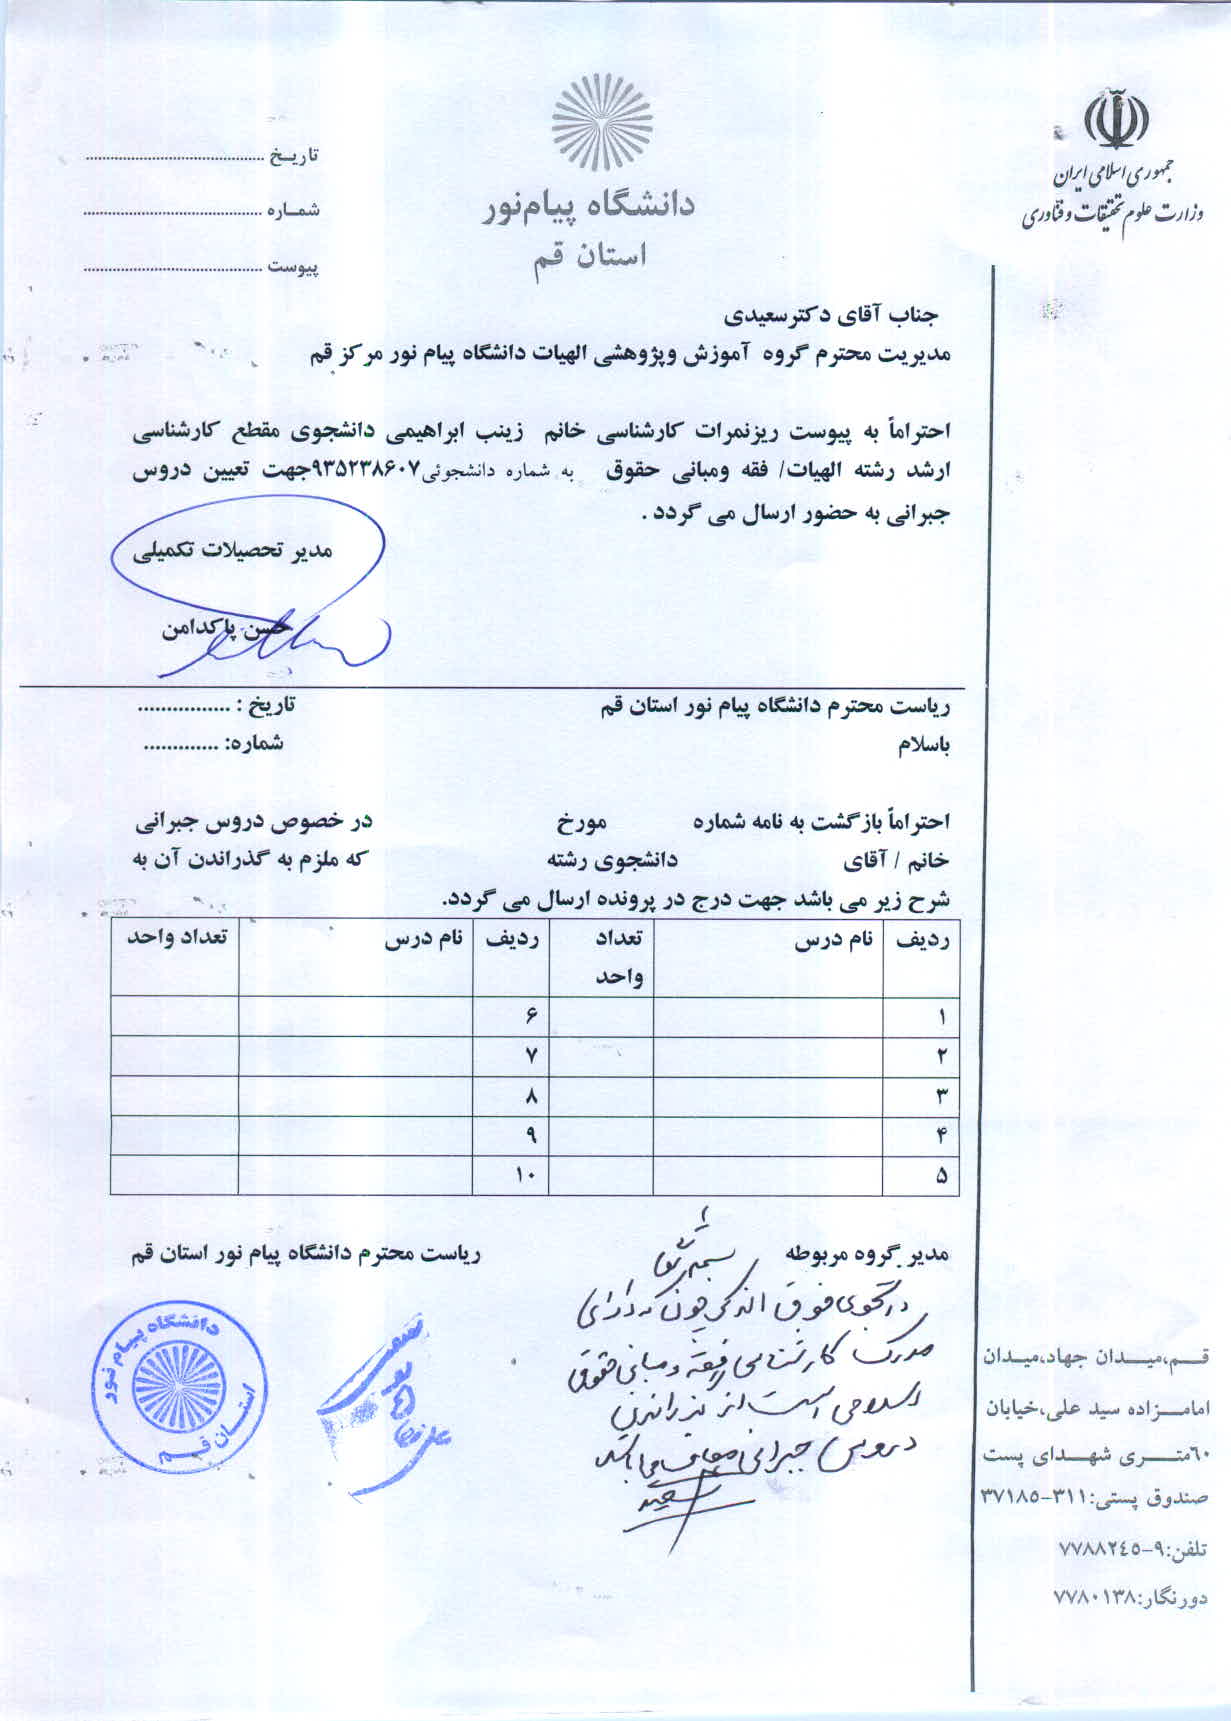 جمهوری اسلامی ایران
وزارت علوم تحقیقات و فناوری
دانشگاه پیام‌نور
استان قم
تاریخ ........................................
شماره ........................................
پیوست ........................................
جناب آقای دکترسعیدی
مدیریت محترم گروه آموزش وپژوهشی الهیات دانشگاه پیام نور مرکز قم
احتراماً به پیوست ریزنمرات کارشناسی خانم زینب ابراهیمی دانشجوی مقطع کارشناسی
ارشد رشته الهیات/ فقه ومبانی حقوق به شماره دانشجوئی۹۳۵۲۳۸۶۰۷جهت تعیین دروس
جبرانی به حضور ارسال می گردد .
مدیر تحصیلات تکمیلی
حسن پاکدامن
ریاست محترم دانشگاه پیام نور استان قم تاریخ : ................
باسلام شماره: .............
احتراماً بازگشت به نامه شماره مورخ در خصوص دروس جبرانی
خانم / آقای دانشجوی رشته که ملزم به گذراندن آن به
شرح زیر می باشد جهت درج در پرونده ارسال می گردد.
ردیف نام درس تعداد واحد ردیف نام درس تعداد واحد
۱ ۶
۲ ۷
۳ ۸
۴ ۹
۵ ۱۰
مدیر گروه مربوطه ریاست محترم دانشگاه پیام نور استان قم
بسمه تعالی
دانشجوی فوق الذکر چون که دارای
مدرک کارشناسی فقه و مبانی حقوق
اسلامی است از گذراندن
دروس جبرانی معاف می باشد
سعیدی
دانشگاه پیام نور
استان قم
قم،میدان جهاد،میدان
امامزاده سید علی،خیابان
۶۰متری شهدای پست
صندوق پستی:۳۱۱-۳۷۱۸۵
تلفن:۹-۷۷۸۸۲٤٥
دورنگار:۷۷۸۰۱۳۸